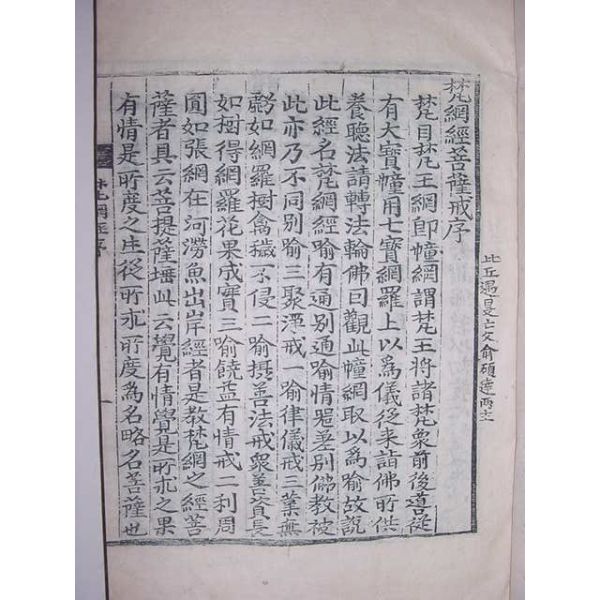 比丘遇是亡父俞碩達両主
梵網經菩薩戒序
梵目梵王網即幢網謂梵王將諸梵衆前後導從
有大寶幢用七寶網羅上以爲儀從來詣佛所供
養聽法請轉法輪佛曰觀此幢網取以爲喻故說
此經名梵網經喻有通別通喻情器差別佛教被
此亦乃不同別喻三聚淨戒一喻律儀戒三業無
虧如網羅樹禽穢不侵二喻攝善法戒衆善資長
如樹得網羅花果成實三喻饒益有情戒二利周
圓如張網在河澇魚出岸經者是教梵網之經菩
薩者具云菩提薩埵此云覺有情覺是所求之果
有情是所度之生從所求所度爲名略名菩薩也
梵網經序 一